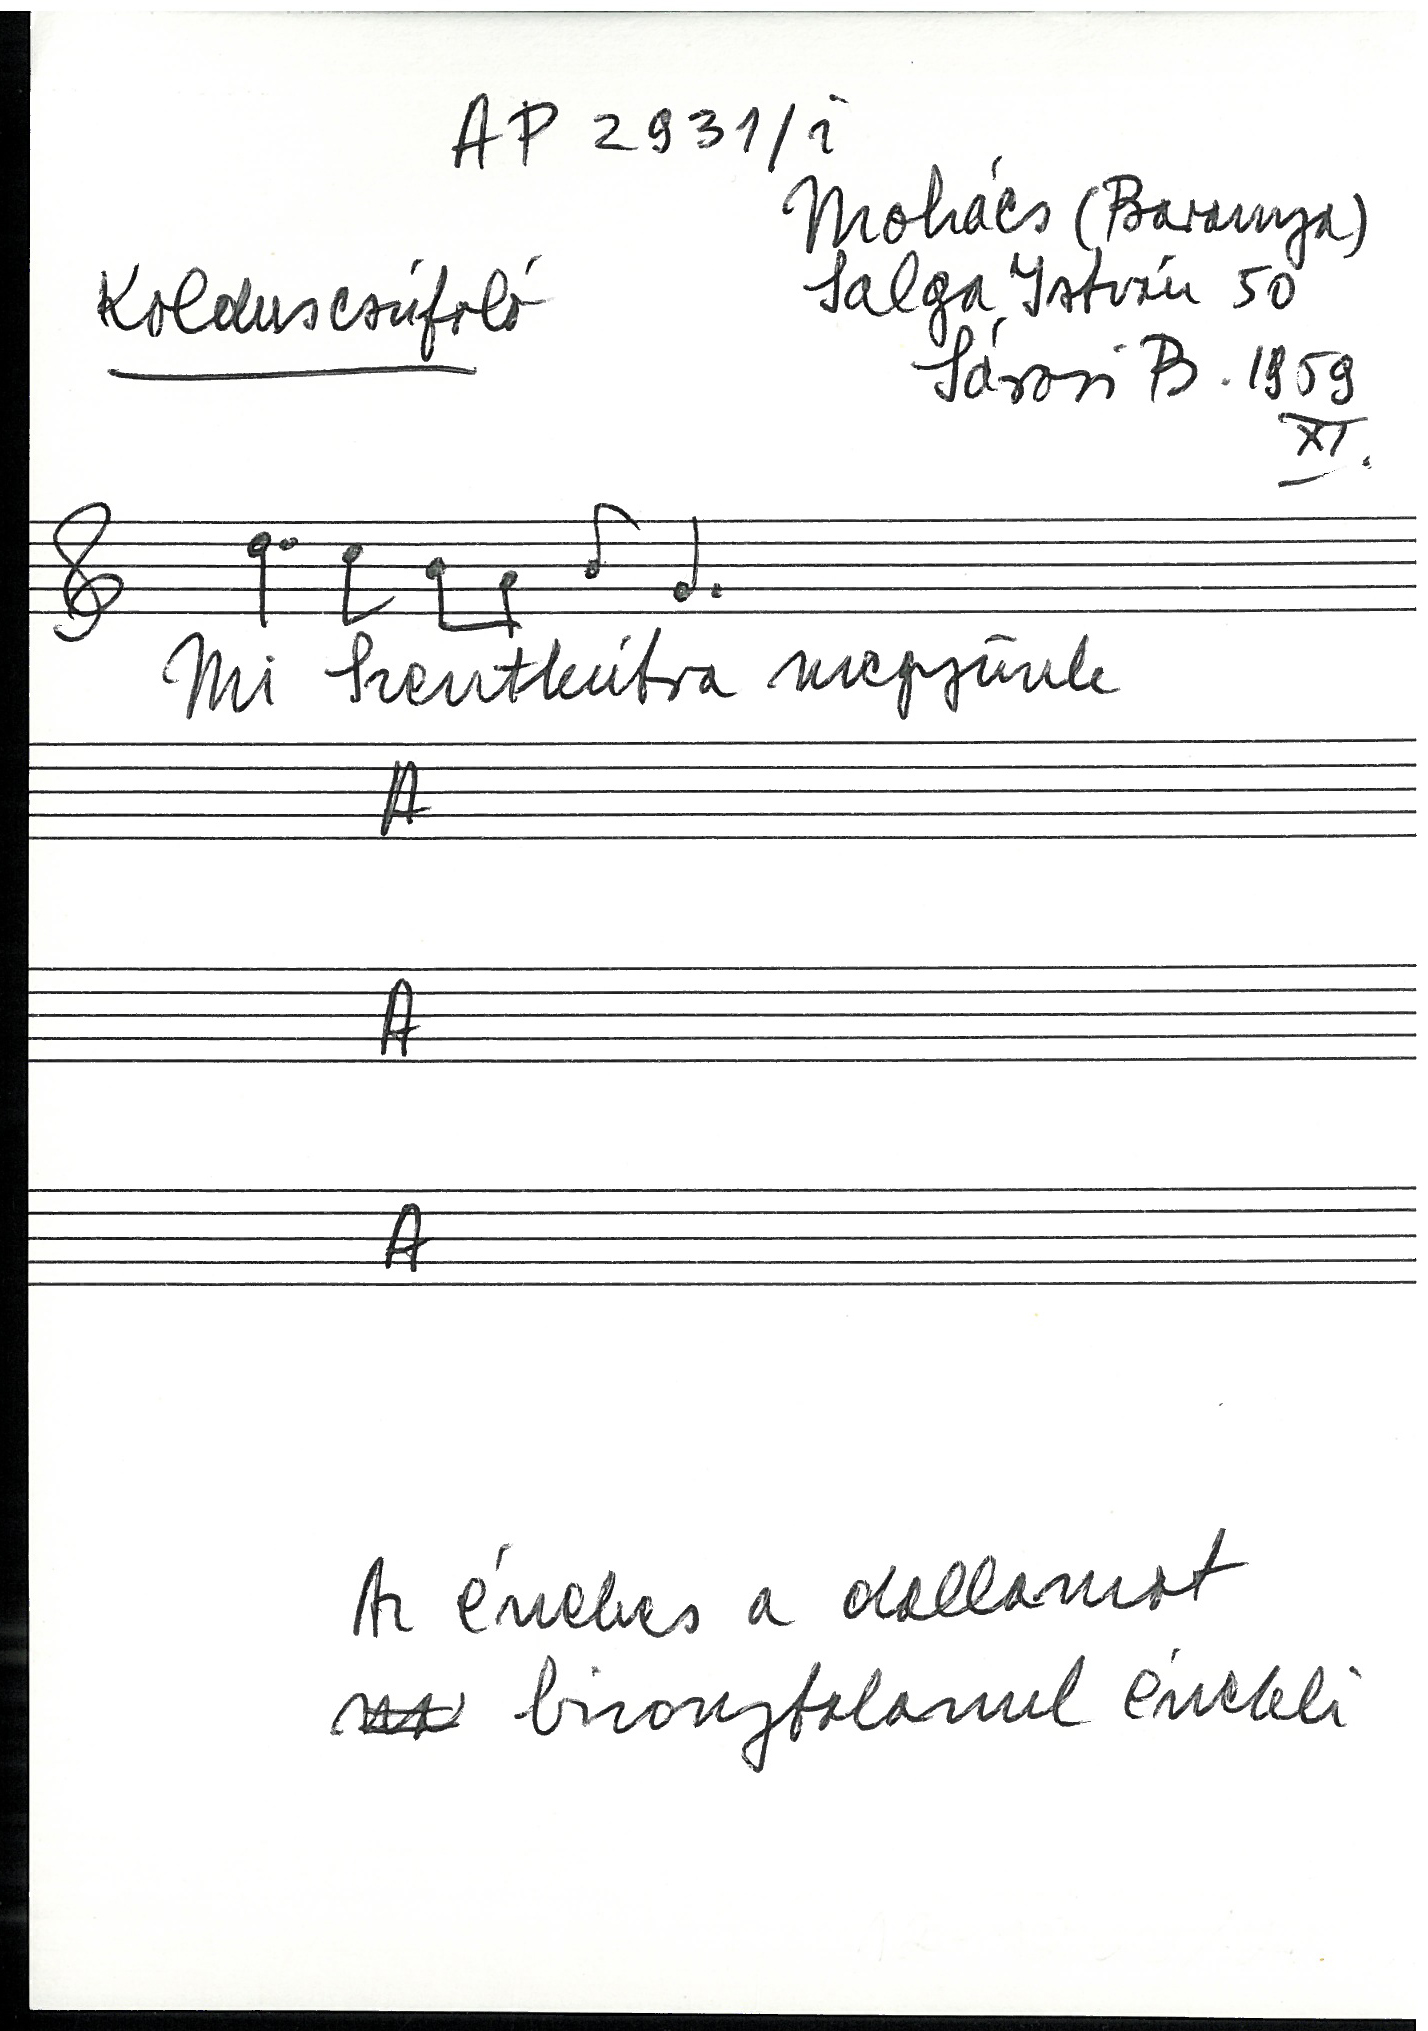 AP 2931/i
Mohács (Baranya)
Kolduscsúfoló
Salga István 50
Sárosi B. 1959
XI.
Mi Szentkútra megyünk
A
A
A
Az énekes a dallamot
bizonytalanul énekli